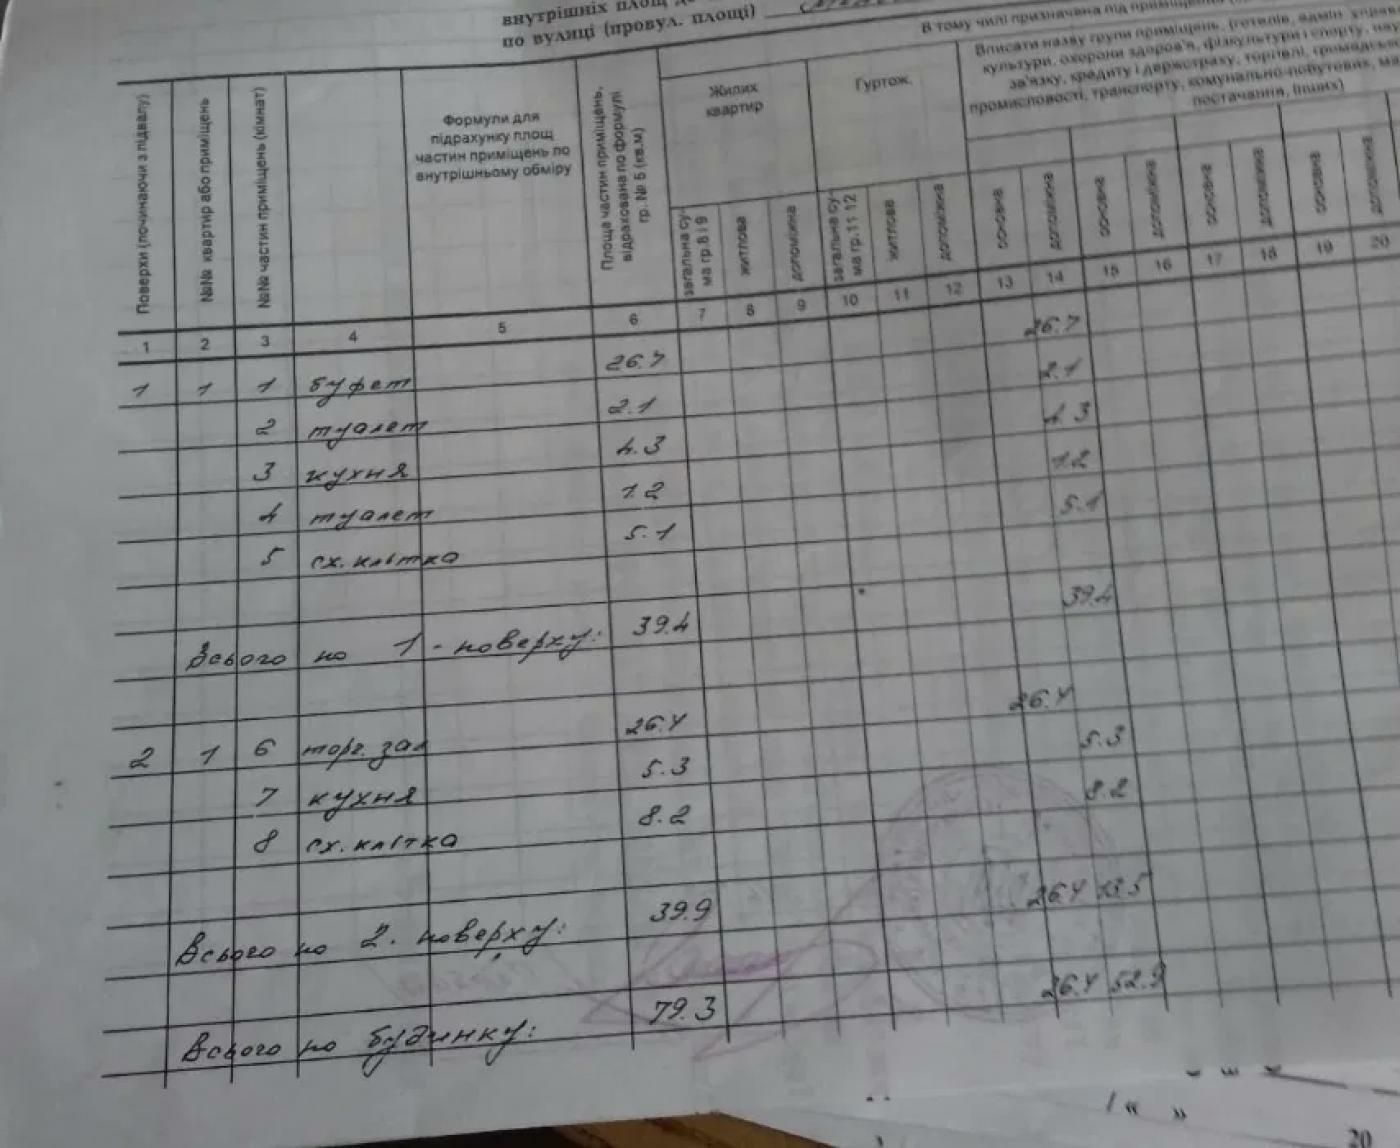 внутрішніх площ
по вулиці (провул. площі)
В тому числі призначена під приміщення
Вписати назву групи приміщень, (готелів, адмін управ
культури, охорони здоров'я, фізкультури і спорту, нау
зв'язку, кредиту і держстраху, торгівлі, громадсь
промисловості, транспорту, комунально-побутових, ма
постачання, інших)
Поверхи (починаючи з підвалу)
№№ квартир або приміщень
№№ частин приміщень (кімнат)
Формули для
підрахунку площ
частин приміщень по
внутрішньому обміру
Площа частин приміщень,
відрахована по формулі
гр. № 5 (кв.м)
Жилих
квартир
Гуртож.
загальна су-
ма гр.8 і 9
житлова
допоміжна
загальна су-
ма гр.11 12
житлова
допоміжна
основна
допоміжна
основна
допоміжна
основна
допоміжна
основна
допоміжна
1 2 3 4 5 6 7 8 9 10 11 12 13 14 15 16 17 18 19 20
1 1 1 буфет 26.7 26.7
2 туалет 2.1 2.1
3 кухня 4.3 4.3
4 туалет 1.2 1.2
5 сх.клітка 5.1 5.1
Всього по 1 - поверху: 39.4 39.4
2 1 6 торг. зал 26.4 26.4
7 кухня 5.3 5.3
8 сх.клітка 8.2 8.2
Всього по 2. поверху: 39.9 26.4 13.5
Всього по будинку: 79.3 26.4 52.9
« »
20